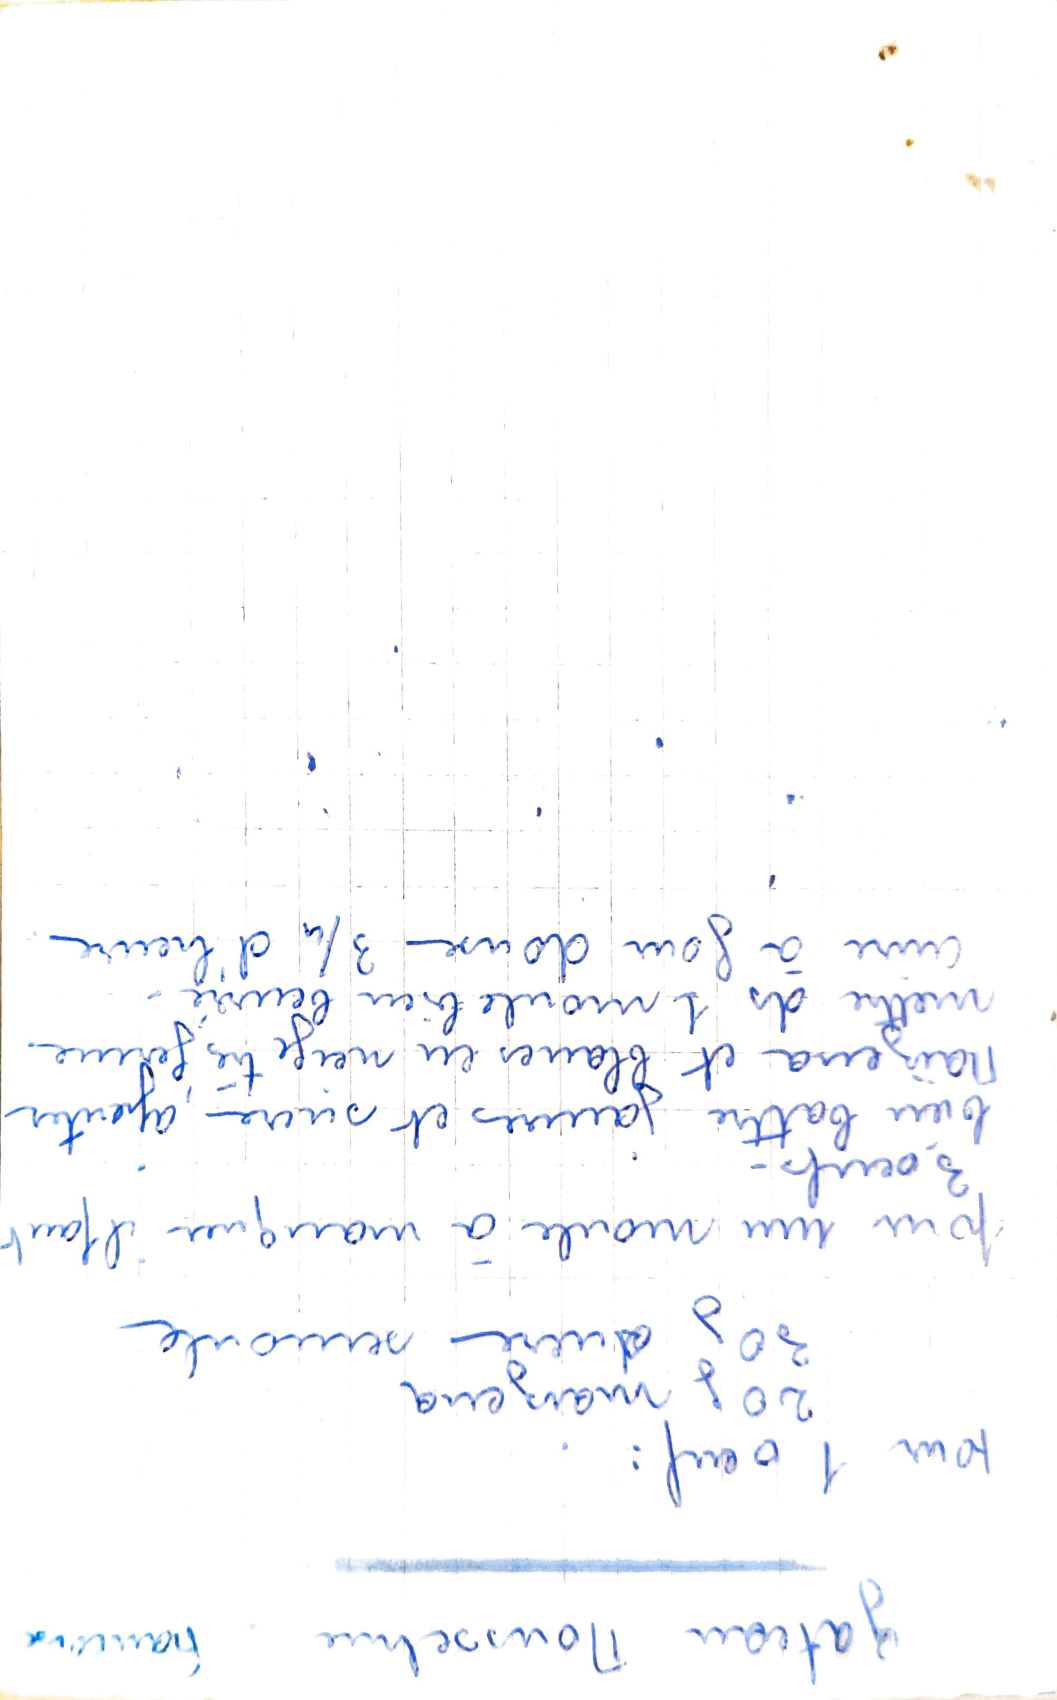 gateau Mousseline
pour 1 oeuf :
20 g maizena
30 g sucre semoule
pour un moule à manquer il faut
3 oeufs -
bien battre jaunes et sucre, ajouter
Maïzena et blancs en neige très ferme
mettre ds 1 moule bien beurré -
cuire à four doux 3/4 d'heure